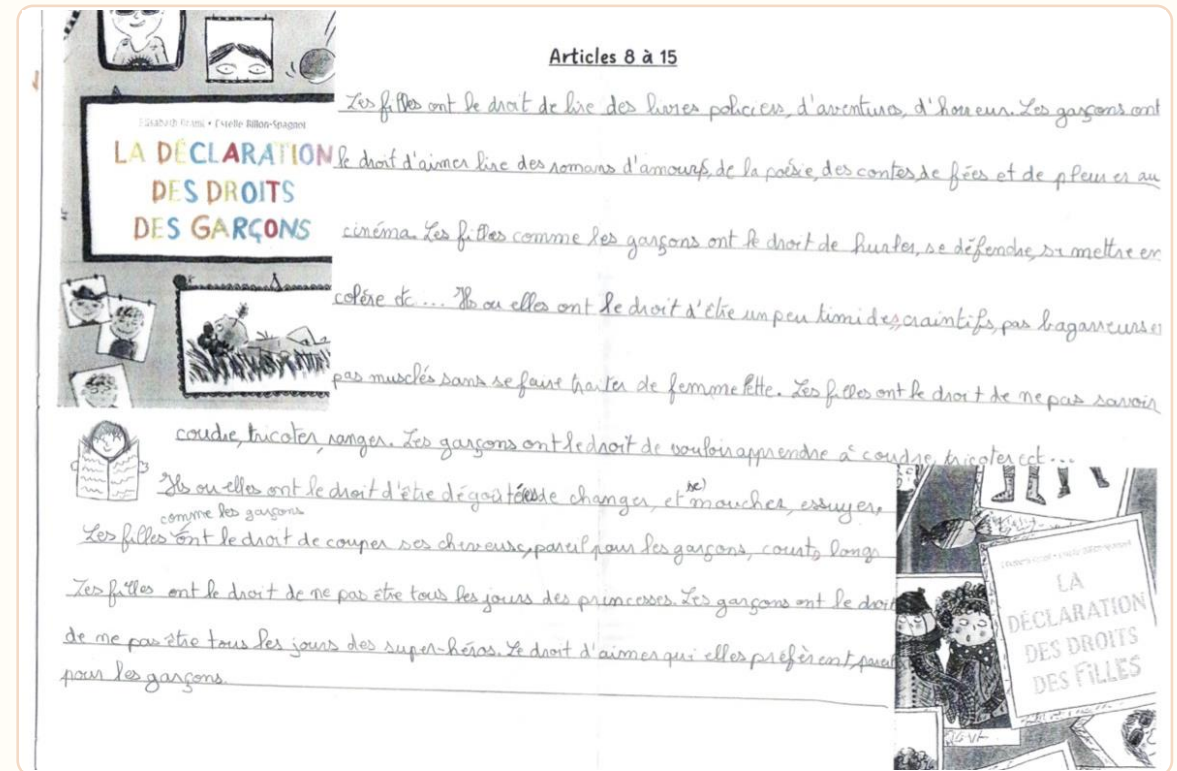 Articles 8 à 15
Elisabeth Brami • Estelle Billon-Spagnol
LA DÉCLARATION
DES DROITS
DES GARÇONS
Les filles ont le droit de lire des livres policiers, d'aventures, d'horreur. Les garçons ont
le droit d'aimer lire des romans d'amours, de la poésie, des contes, de fées et de pleurer au
cinéma. Les filles comme les garçons ont le droit de hurler, se défendre, se mettre en
colère etc ... Ils ou elles ont le droit d'être un peu timides, craintifs, pas bagarreurs et
pas musclés sans se faire traiter de femmelette. Les filles ont le droit de ne pas savoir
coudre, tricoter, ranger. Les garçons ont le droit de vouloir apprendre à coudre, tricoter ect...
Ils ou elles ont le droit d'être dégoûté de changer, et (se) moucher, essuyer.
comme les garçons
Les filles ont le droit de couper ses cheveux, pareil pour les garçons, courts, longs
Les filles ont le droit de ne pas être tous les jours des princesses. Les garçons ont le droit
de ne pas être tous les jours des super-héros. Le droit d'aimer qui elles préfèrent, pareil
pour les garçons.
LA
DÉCLARATION
DES DROITS
DES FILLES